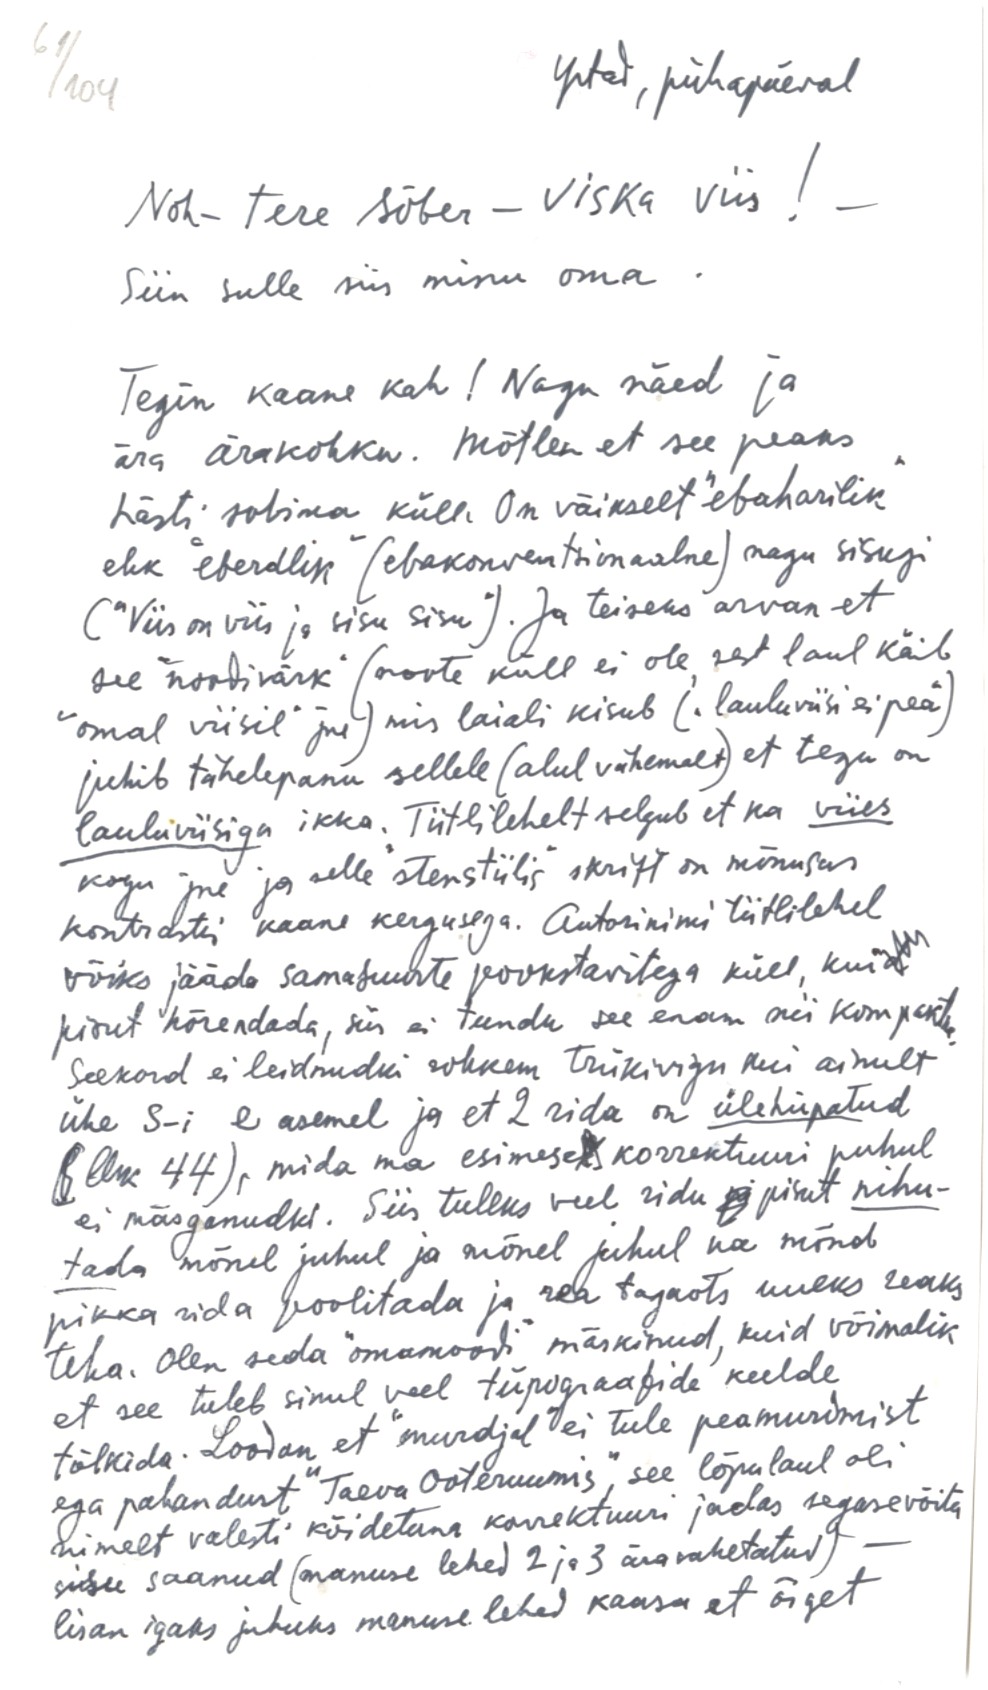 61/104
Ystad, pühapäeval
Noh – tere sõber – viska viis! –
Siin sulle siis minu oma.
Tegin kaane kah! Nagu näed ja
ära ärakohku. Mõtlen et see peaks
hästi sobima küll. On väikselt "ebaharilik"
ehk "eberdlik" (ebakonventsionaalne) nagu sisugi
("Viis on viis ja sisu sisu"). Ja teiseks arvan et
see "noodivärk" (noote küll ei ole, sest laul käib
"omal viisil" jne) mis laiali kisub (. lauluviisi ei pea)
juhib tähelepanu sellele (alul vähemalt) et tegu on
lauluviisiga ikka. Tiitlilehelt selgub et ka viies
kogu jne ja selle "stenstiilis" skrift on mõnusas
kontrastis kaane kergusega. Autorinimi tiitlilehel
võiks jääda samasuurte pookstavitega küll, kuid
pisut hõrendada, siis ei tundu see enam nii kompaktne.
Seekord ei leidnudki rohkem trükivigu kui ainult
ühe S-i e asemel ja et 2 rida on ülehüpatud
(lhk 44), mida ma esimese korrektuuri puhul
ei mäsganudki. Siis tuleks veel ridu pisut nihu-
tada mõnel juhul ja mõnel juhul ka mõnd
pikka rida poolitada ja rea tagaots uueks reaks
teha. Olen seda "omamoodi" mäskinud, kuid võimalik
et see tuleb sinul veel tüpograafide keelde
tõlkida. Loodan, et "murdjal" ei tule peamurdmist
ega pahandust "Taeva Ooteruumis", see lõpulaul oli
nimelt valesti köidetuna korrektuuri jadas segasevõitu
sisu saanud (manuse lehed 2 ja 3 äravahetatud) –
lisan igaks juhuks manuse lehed kaasa et õiget